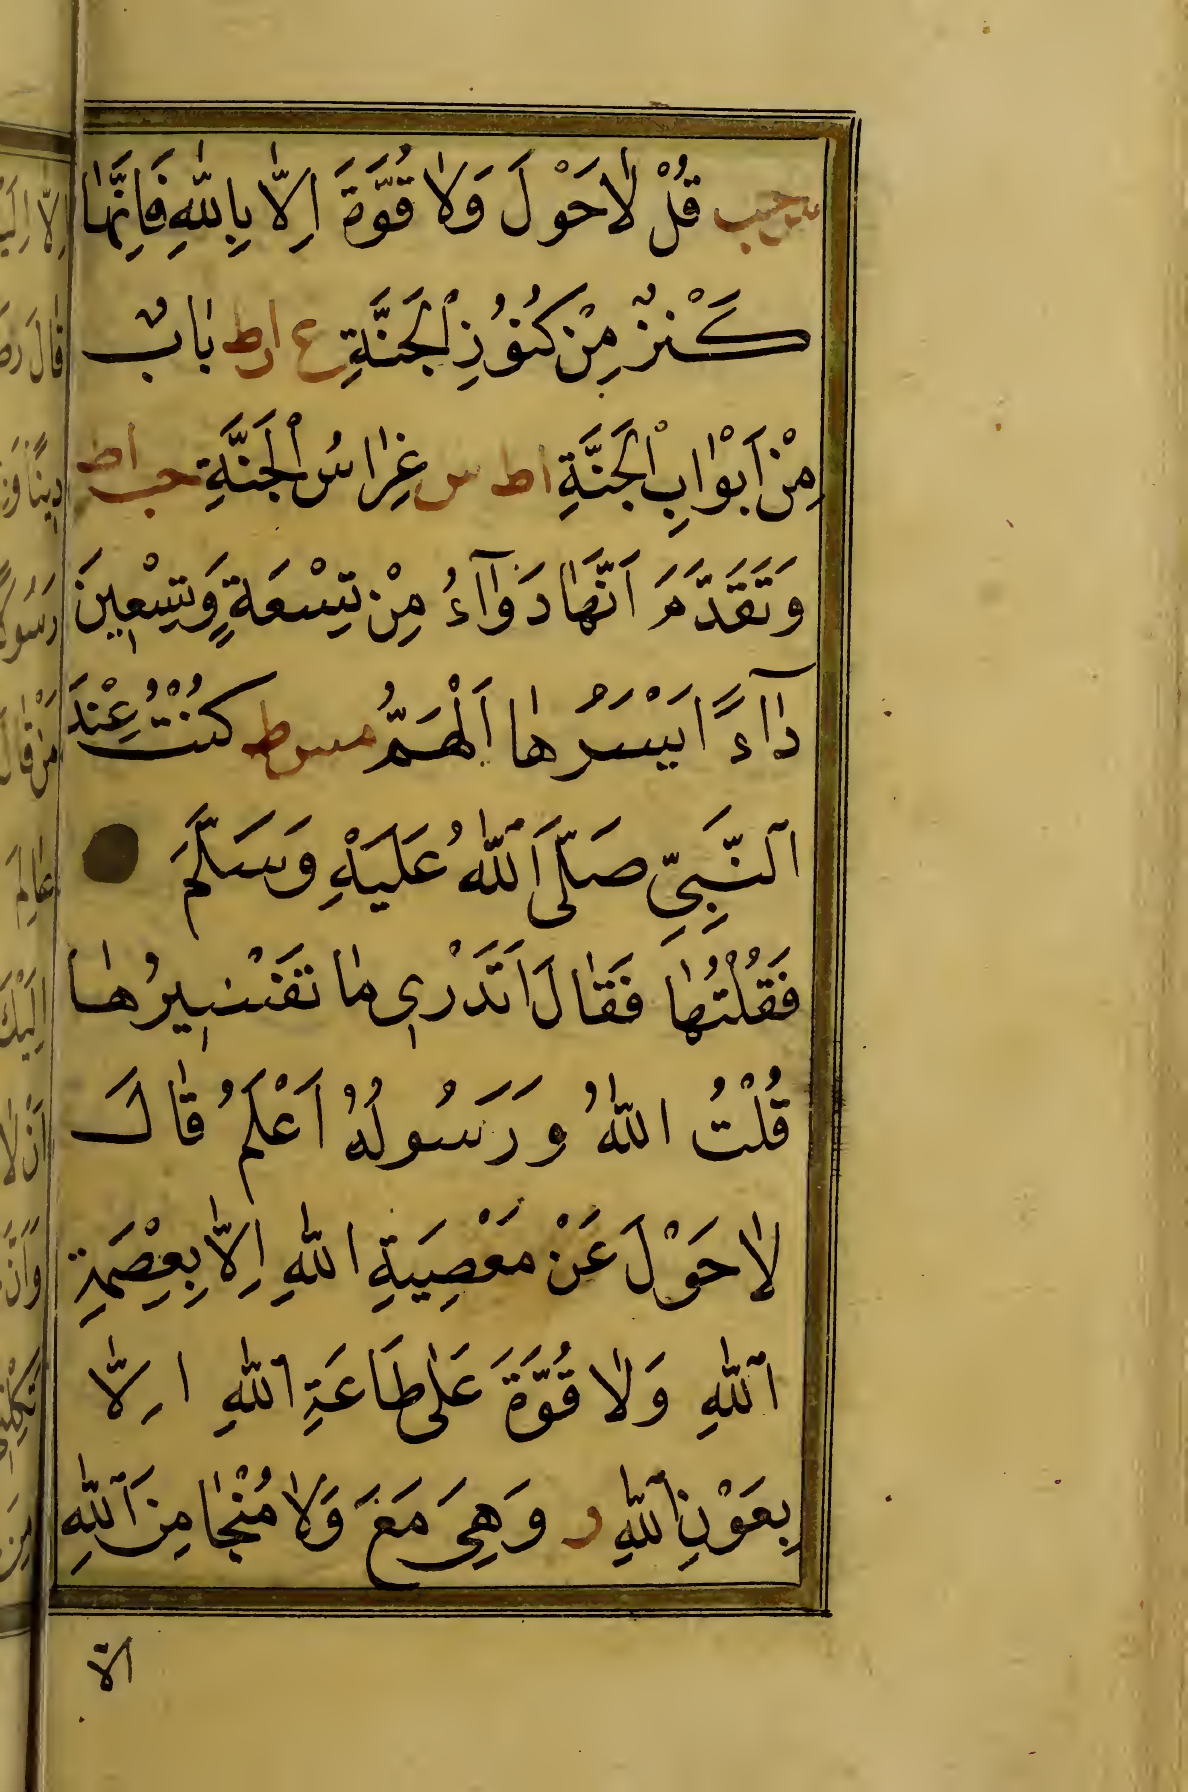 قُلْ لَاحَوْلَ وَلَا قُوَّةَ اِلَّا بِاللّٰهِ فَاِنَّهَا
كَنْزٌ مِنْ كُنُوْزِ الْجَنَّةِ ع ا ط بَابٌ
مِنْ اَبْوَابِ الْجَنَّةِ ا ط س غِرَاسُ الْجَنَّةِ حب ا ط
وَتَقَدَّمَ اَنَّهَا دَوَآءُ مِنْ تِسْعَةٍ وَتِسْعِينَ
دَآءً اَيْسَرُهَا اَلْهَمُّ مس ط كُنْتُ عِنْدَ
النَّبِيِّ صَلَّى اللّٰهُ عَلَيْهِ وَسَلَّمَ
فَقُلْتُهَا فَقَالَ اَتَدْرِي مَا تَفْسِيرُهَا
قُلْتُ اللّٰهُ وَرَسُولُهُ اَعْلَمُ قَالَ
لَاحَوْلَ عَنْ مَعْصِيَةِ اللّٰهِ اِلَّا بِعِصْمَةِ
اللّٰهِ وَلَا قُوَّةَ عَلٰى طَاعَةِ اللّٰهِ اِلَّا
بِعَوْنِ اللّٰهِ ر وَهِيَ مَعَ وَلَا مُنْجَا مِنَ اللّٰهِ
الا